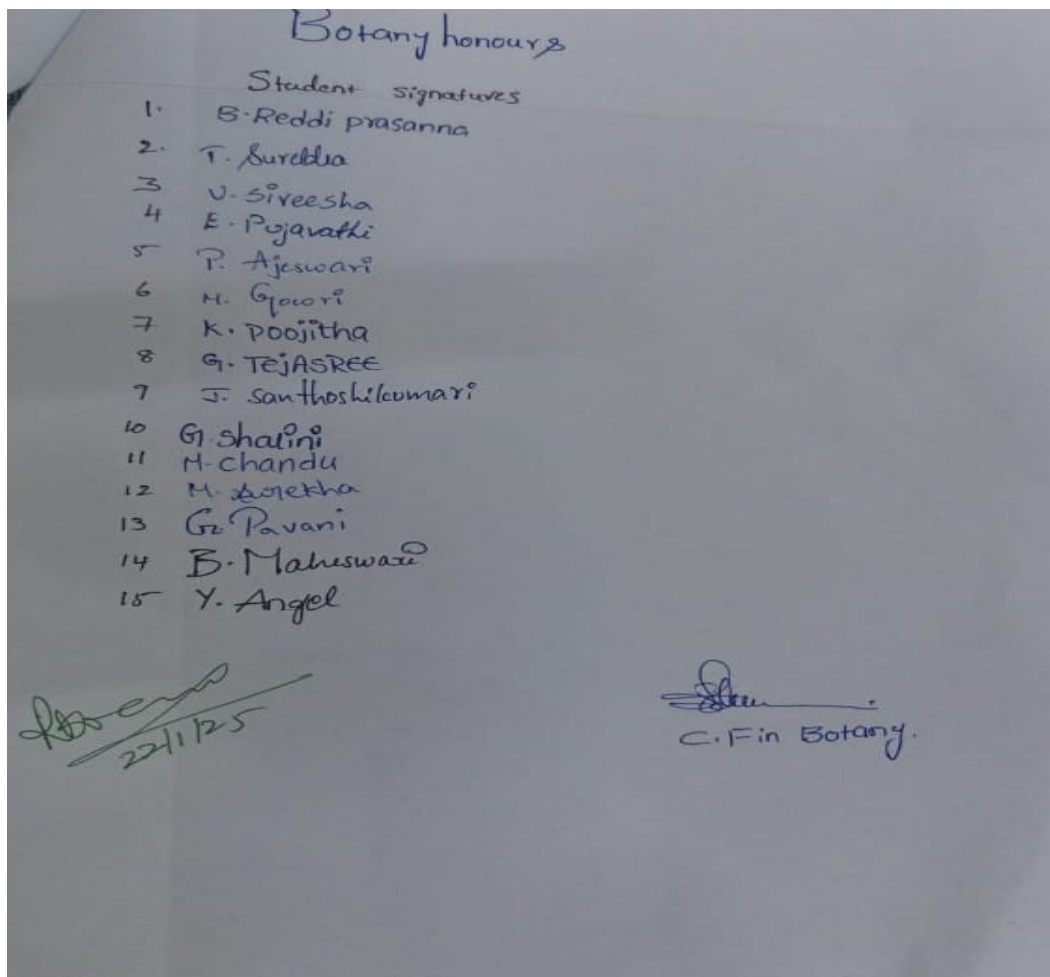 Botany honours
Student signatures
1. B. Reddi prasanna
2. T. Surekha
3 V. Sireesha
4 E. Pujavathi
5 P. Ajeswari
6 M. Gowri
7 K. Poojitha
8 G. TejASREE
9 J. Santhoshikumari
10 G. shalini
11 M. chandu
12 M. Surekha
13 G. Pavani
14 B. Maheswari
15 Y. Angel
22/1/25
C.F in Botany.